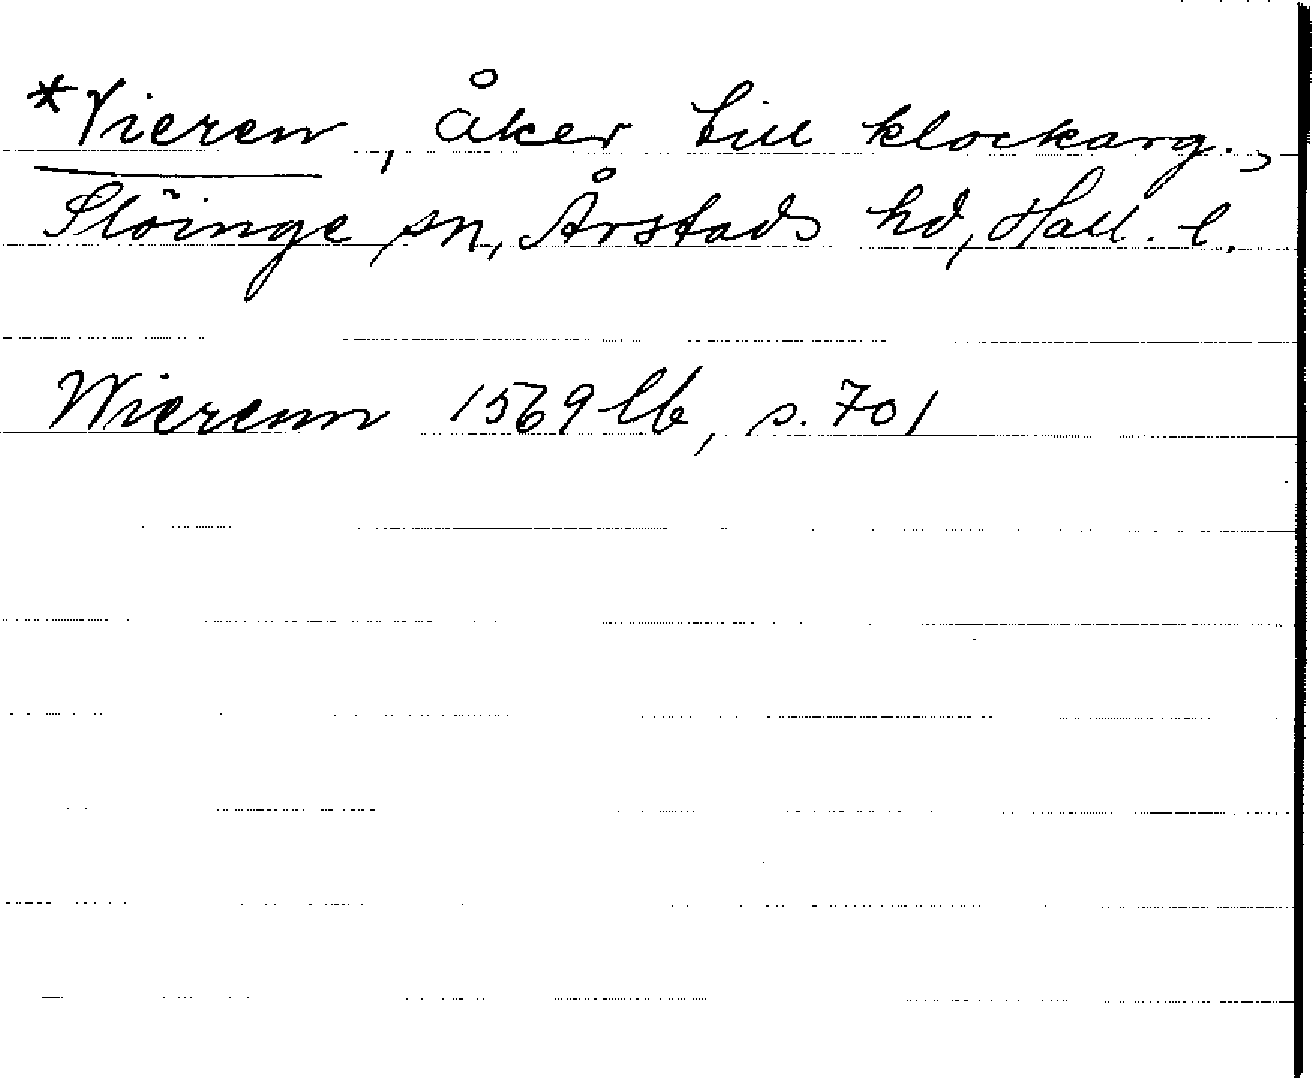 *Vieren, åker till klockarg.,
Slöinge sn, Årstads hd, Hall. l.
Wierenn 1569 lb, s. 701